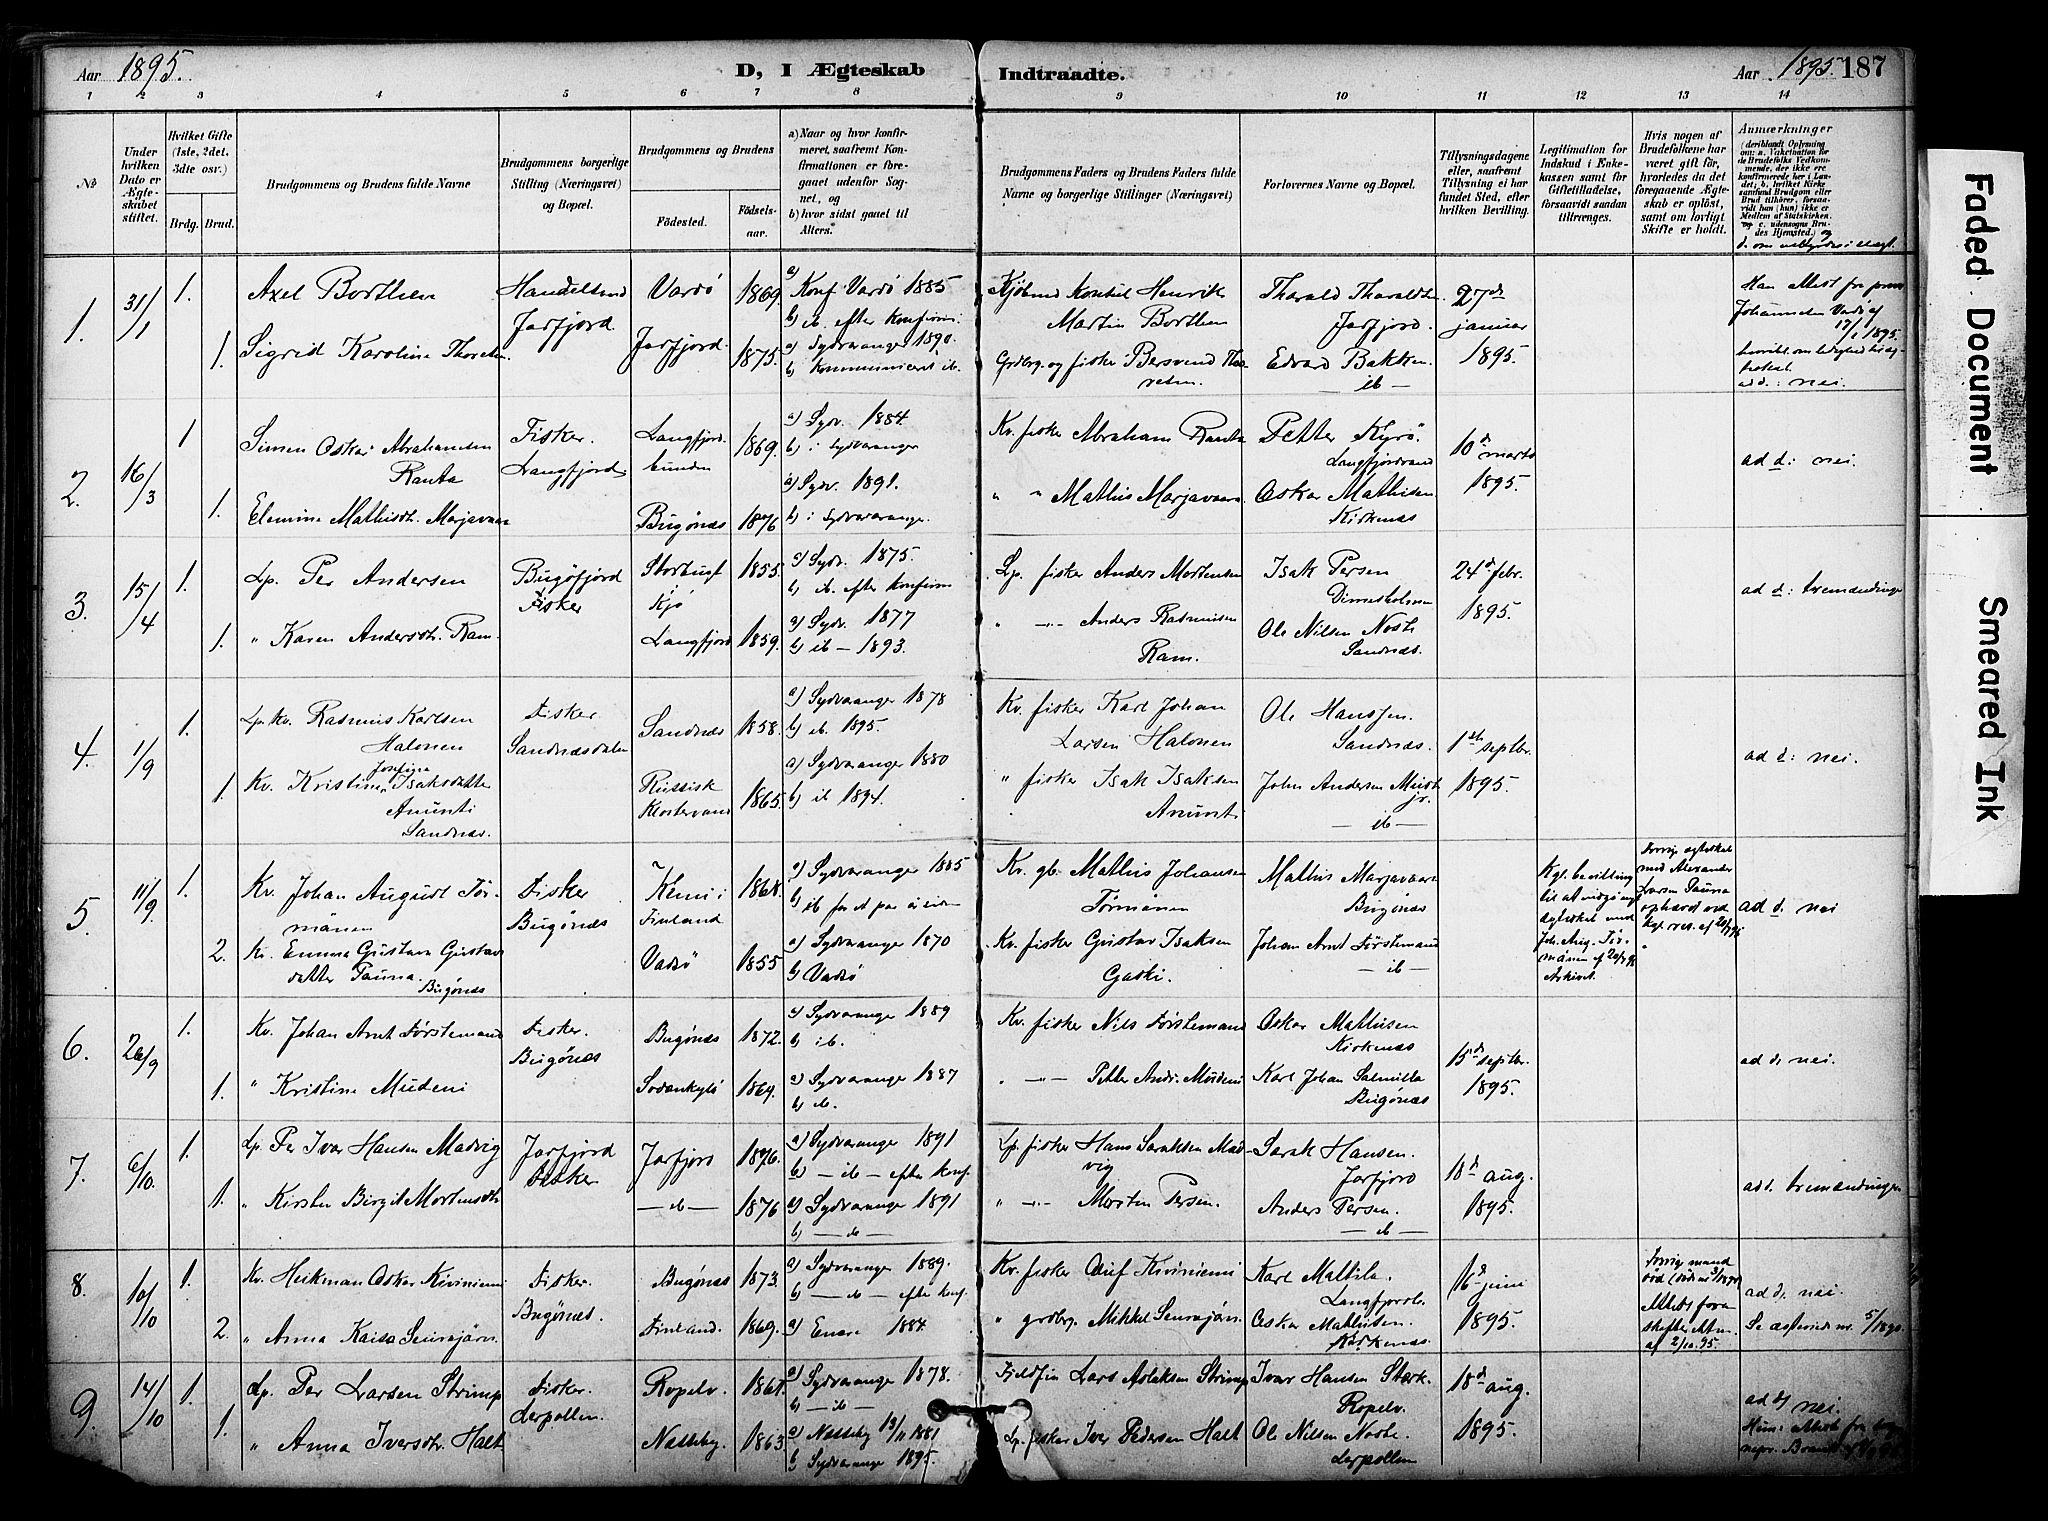 Aar 1895.
D, I Ægteskab Indtraadte.
Aar 1895. 187
1 2 3 4 5 6 7 8 9 10 11 12 13 14
No
Under hvilken Dato er Ægteskabet stiftet.
Hvilket Gifte (1ste, 2det, 3dte osv.)
Brdg. Brud.
Brudgommens og Brudens fulde Navne
Brudgommens borgerlige Stilling (Næringsvei) og Bopæl.
Brudgommens og Brudens
Fødested.
Fødselsaar.
a) Naar og hvor konfirmeret, saafremt Konfirmationen er foregaaet udenfor Sognet, og
b) hvor sidst gaaet til Alters.
Brudgommens Faders og Brudens Faders fulde Navne og borgerlige Stillinger (Næringsvei)
Forlovernes Navne og Bopæl.
Tillysningsdagene eller, saafremt Tillysning ei har fundet Sted, efter hvilken Bevilling.
Legitimation for Indskud i Enkekassen samt for Giftetilladelse, forsaavidt saadan tiltrænges.
Hvis nogen af Brudefolkene har været gift før, hvorledes da det foregaaende Ægteskab er opløst, samt om lovligt Skifte er holdt.
Anmærkninger (deriblandt Oplysning om: a. Vakcination for de Brudefolks Vedkommende, der ikke ere konfirmerede her i Landet; b. hvilket Kirkesamfund Brudgom eller Brud tilhører, forsaavidt han (hun) ikke er Medlem af Statskirken, og c. udensogns Brudes Hjemsted.) og
1. 31/1 1. Axel Borthen Handelsmd Jarfjord Vardø 1869.
a) Konf Vardø 1885
b) ib. efter Konfirm:
Kjøbmd Konsul Henrik Martin Borthen
Tharald Tharaldsen Jarfjord.
27de januar 1895.
1. Sigrid Karoline Jarfjord. 1875.
a) Sydvaranger 1890.
b) kommuniceret ib.
Grdbrg. og fisker
Edvard Bakken — ib —
17/1 1895.
ad d.: nei.
2. 16/3 1 Simen Oskar Abrahamsen Ranta Fisker. Langfjord Langfjordbunden 1869.
a) Sydv. 1884.
b) i Sydvaranger
Kv. fisker Abraham Ranta
Petter Kyrö. Langfjordvand
10d marts 1895.
ad d: nei.
1. Elemine Mathisdtr. Marjavaara Bugønæs 1876
a) Sydv. 1891.
b) i Sydvaranger.
" " Mathis Marjavaara
Oskar Mathisen Kirkenæs
3. 15/4 1. Lp. Per Andersen Bugøfjord Fisker 1855.
a) Sydv. 1875.
b) ib. efter Konfirm
Lp. fisker Anders Mortensen
Isak Persen Dimesholmen
24d febr. 1895.
ad d: tremændinge
1. " Karen Andersdtr. Ram. Langfjord 1859.
a) Sydv. 1877
b) ib — 1893.
" —"— Anders Rasmusen Ram.
Ole Nilsen Noste Sandnæs.
4. 1/9 1. Lp. Kv. Rasmus Karlsen Halonen Fisker Sandnæsdalen Sandnæs 1858.
a) Sydvaranger 1878
b) ib. 1895.
Kv. fisker Karl Johan Larsen Halonen
Ole Hanssen. Sandnæs.
1ste septbr. 1895.
ad d: nei.
1. Kv. Kristine Josefine Isaksdatter Anunti Sandnæs. Russisk Klostervand 1865.
a) Sydvaranger 1880
b) ib 1894.
" fisker Isak Isaksen Anunti
John Andersen Must jr. — ib —
5. 11/9 1. Kv. Johan August Törmänen Fisker Bugønæs Kemi i Finland 1868.
a) Sydvaranger 1885
b) ib for et par år siden
Kv. gb. Mathis Johansen Törmänen
Mathis Marjavaara Bugönæs
Kgl. bevilling til at indgå nyt ægteskab med Joh. Aug. Törmänen
Forrige ægteskab med Alexander Larsen Pauna ophævet ved Kgl. res. af
ad d. nei
2. Kv. Emma Gustava Gustavsdatter Pauna. Bugönæs Vadsö 1855
a) Sydvaranger 1870
b) Vadsö
Kv. fisker Gustav Isaksen Gaski.
Johan Arnt Førstemand — ib —
6. 26/9 1. Kv. Johan Arnt Førstemand Fisker. Bugönæs Bugönæs 1872.
a) Sydvaranger 1889
b) ib.
Kv. fisker Nils Førstemand
Oskar Mathisen Kirkenæs
15d septbr. 1895.
ad d: nei.
1. " Kristine Mudeni Sodankylä 1864.
a) Sydvaranger 1887
b) ib.
" —"— Petter Andr. Mudeni
Karl Johan Salmilla Bugönæs
7. 6/10 1. Lp. Per Ivar Hansen Madvig Jarfjord Fisker Jarfjord 1876.
a) Sydvaranger 1891
b) — ib — efter konf.
Lp. fisker Hans Saraksen Madvig
Sarak Hansen. Jarfjord
18d aug. 1895.
add. tremændinger
1. " Kirsten Birgit Mortensdtr — ib — 1876
a) Sydvaranger 1891
b) — ib —
" —"— Morten Persen.
Anders Persen. — ib —
8. 10/10 1. Kv. Heikman Oskar Kiviniemi Fisker. Bugönæs. Bugönæs 1873.
a) Sydvaranger 1889.
b) — ib — efter konf.
Kv. fisker Oluf Kiviniemi
Karl Mattila. Langfjordb.
16d juni 1895.
ad d. nei.
2. " Anna Kaisa Seurujärvi Finland. 1869.
a) Enare 1884.
" grdbrg. Mikkel Seurujärvi.
Oskar Mathisen. Kirkenæs
9. 14/10 1. Lp. Per Larsen Strimp Fisker. Lerpollen. Ropelv. 1861.
a) Sydvaranger 1878.
b) — ib —
Fjeldfin Lars Aslaksen Strimp
Ivar Hansen Stærk. Ropelv.
18d aug. 1895.
ad d) nei.
1. " Anna Iversdtr. Halt Nesseby. 1863
a) Nesseby 13/11 1881
b) Sydvaranger 1895.
Lp. fisker Iver Pedersen Halt
Ole Nilsen Noste. Lerpollen
Faded Document
Smeared Ink